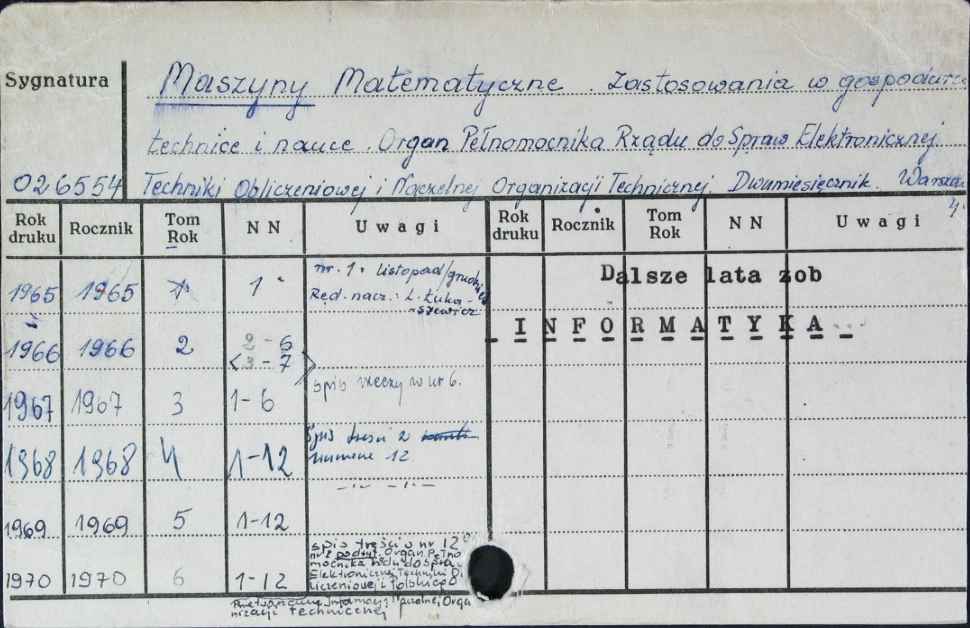 Sygnatura
Maszyny Matematyczne. Zastosowania w gospodarce
technice i nauce. Organ Pełnomocnika Rządu do Spraw Elektronicznej
026554 Techniki Obliczeniowej i Naczelnej Organizacji Technicznej. Dwumiesięcznik.
Rok druku Rocznik Tom Rok N N Uwagi Rok druku Rocznik Tom Rok N N Uwagi
1965 1965 1 1 nr. 1. listopad/grudzień
Red. nacz.: L. Łuka-
szewicz
Dalsze lata zob
INFORMATYKA
1966 1966 2 2-6
<3-7>
1967 1967 3 1-6 spis rzeczy w nr 6.
1968 1968 4 1-12 Spis treści z
numerze 12
1969 1969 5 1-12
1970 1970 6 1-12 spis treści w nr 12
podtyt. Organ Pełno
mocnika Rządu do Spraw
Elektronicznej Techniki
nizacji technicznej